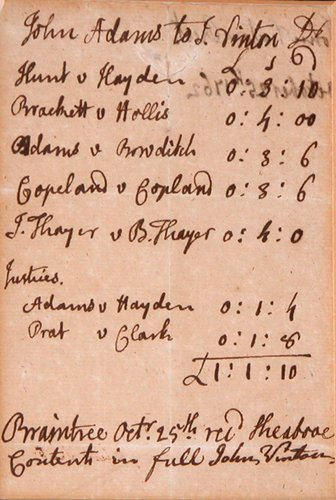 John Adams to J. Vinton Dr
£ s d
Hunt v Hayden 0:3:10
Brackett v Hollis 0:4:00
Adams v Bowditch 0:3:6
Copeland v Copland 0:3:6
J. Thayer v B. Thayer 0:4:0
Justices.
Adams v Hayden 0:1:4
Prat v Clark 0:1:8
£1:1:10
Braintree Octr. 25th recd the above
Contents in full John Vinton